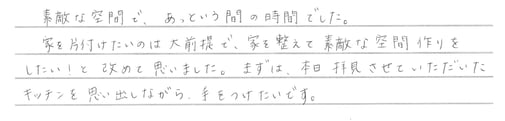 素敵な空間で、あっという間の時間でした。
家を片付けたいのは大前提で、家を整えて素敵な空間作りを
したい！と改めて思いました。まずは、本日拝見させていただいた
キッチンを思い出しながら、手をつけたいです。